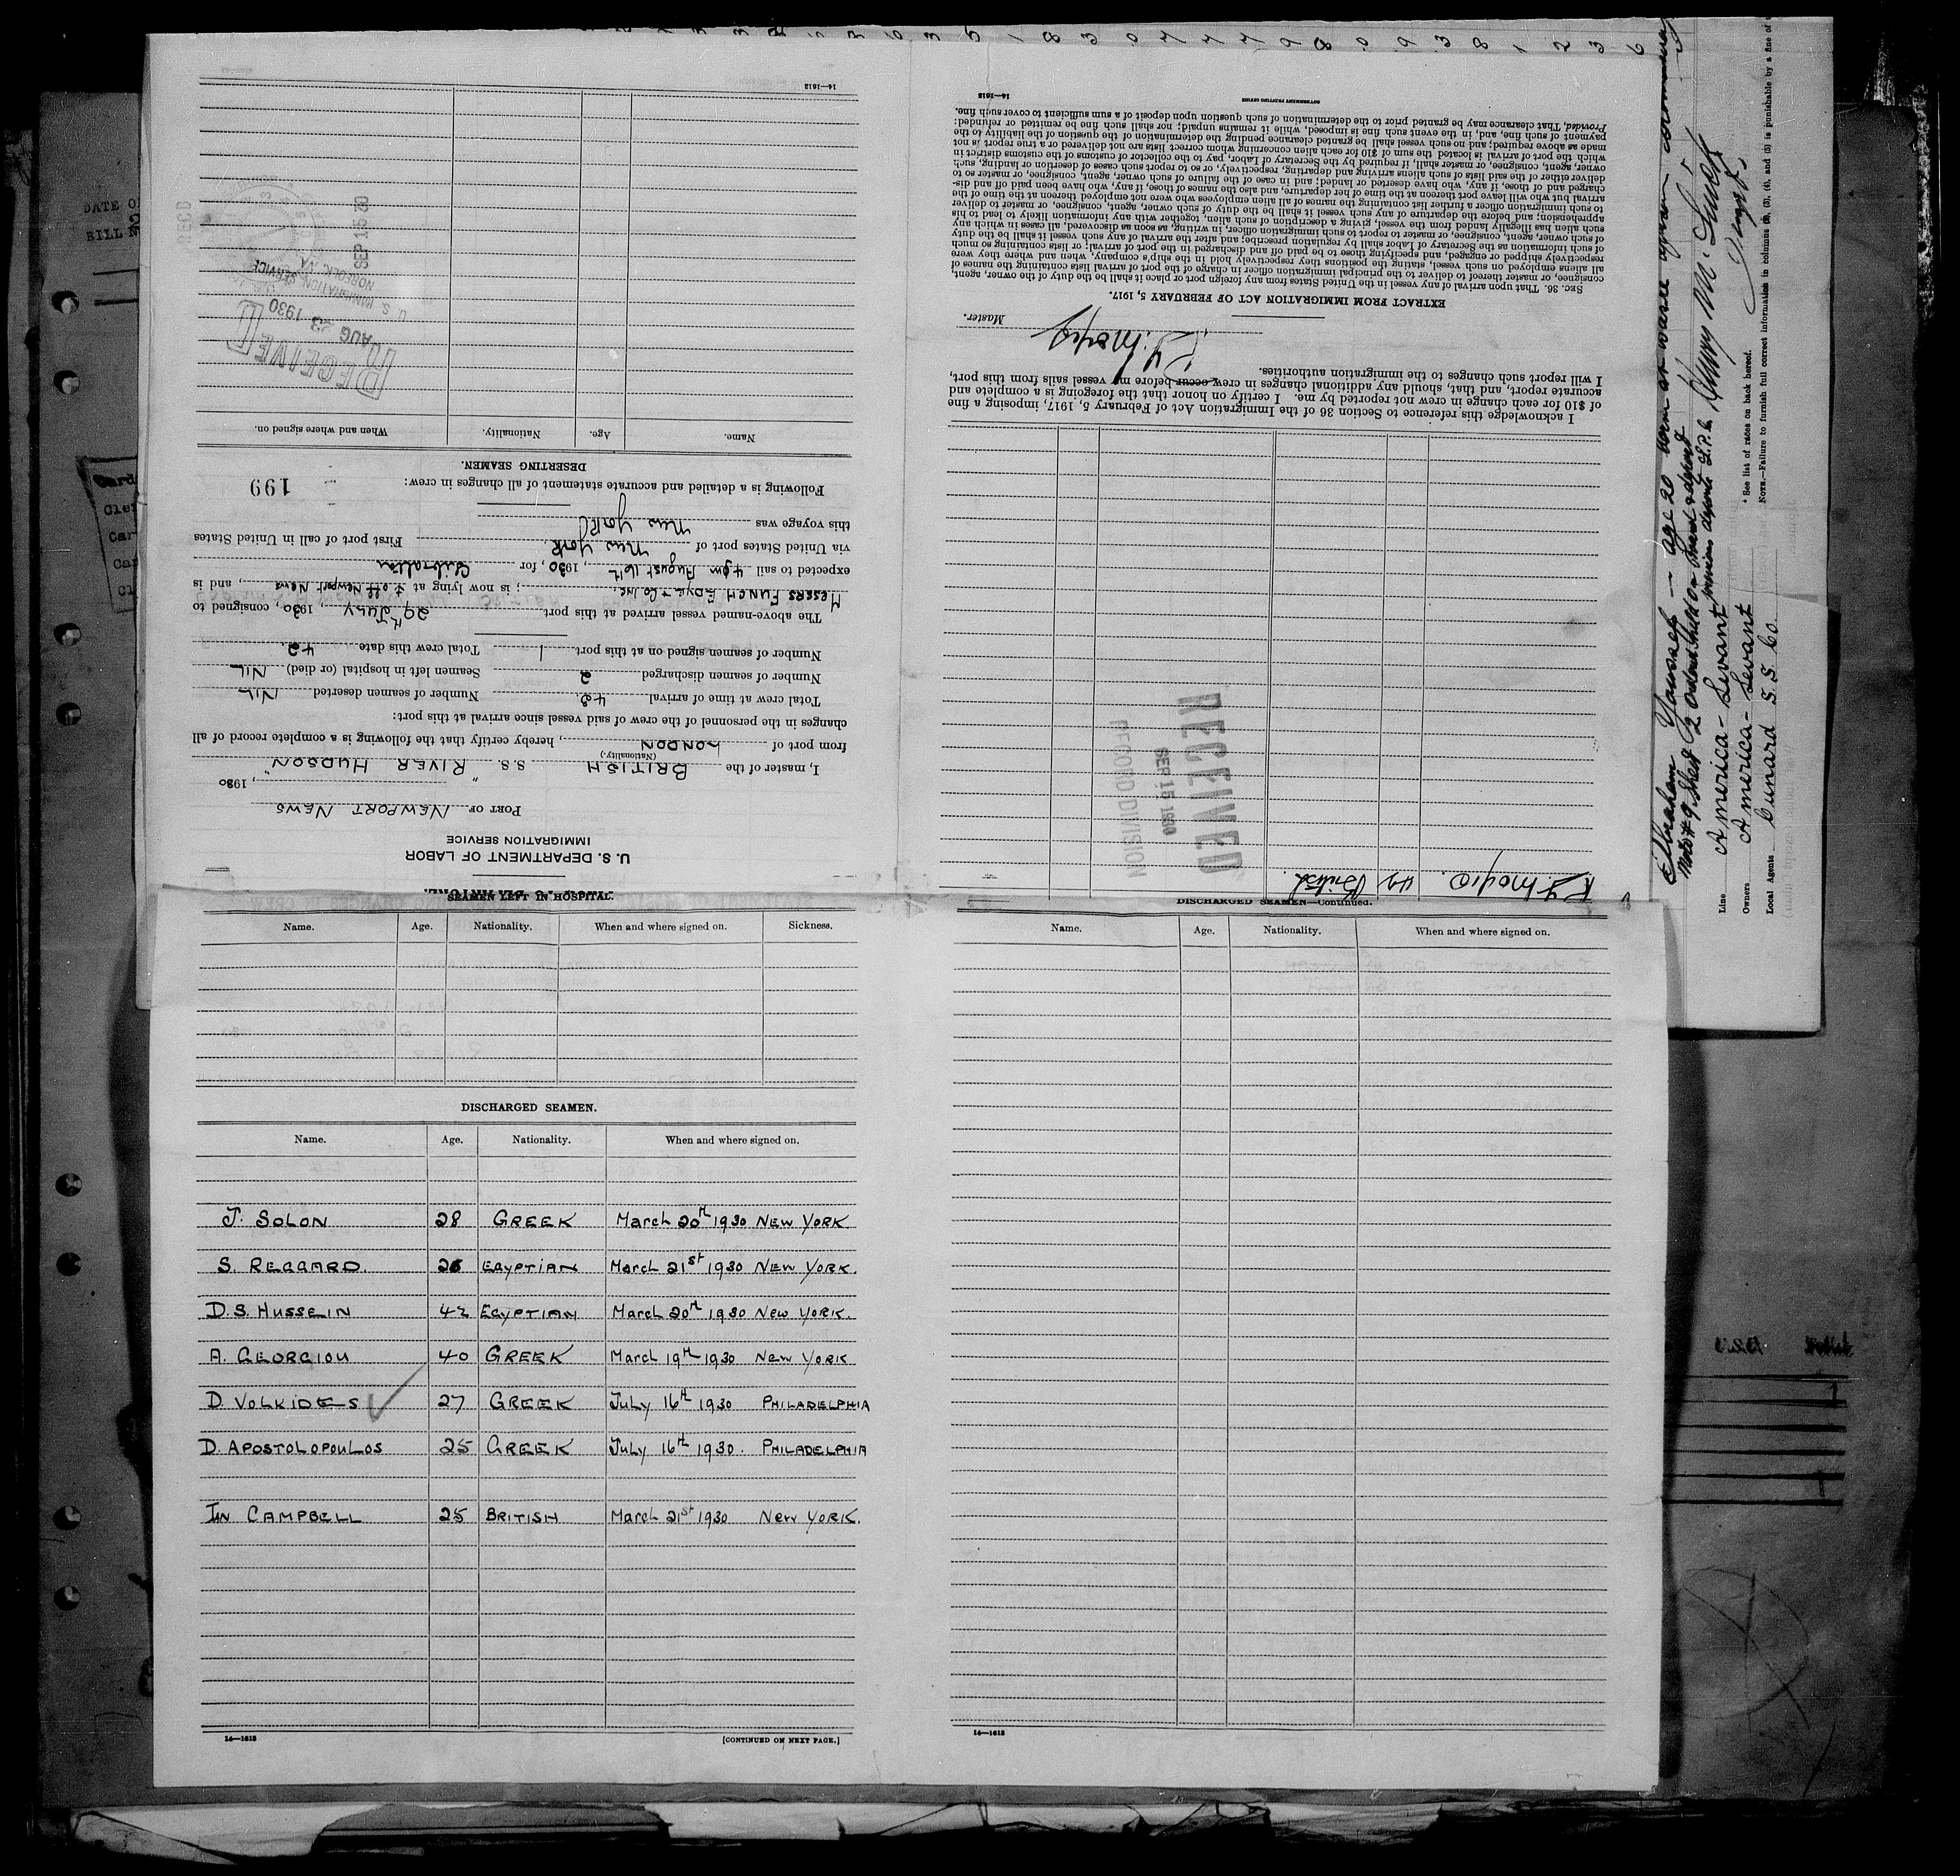 U. S. DEPARTMENT OF LABOR
IMMIGRATION SERVICE
PORT OF NEWPORT NEWS
, 1930
I, master of the BRITISH S.S. "RIVER HUDSON",
(Nationality.)
from port of LONDON, hereby certify that the following is a complete record of all
changes in the personnel of the crew of said vessel since arrival at this port:
Total crew at time of arrival 42 Number of seamen deserted NIL
Number of seamen discharged 2 Seamen left in hospital (or died) NIL
Number of seamen signed on at this port 1 Total crew this date 42
The above-named vessel arrived at this port 29th JULY, 1930, consigned to
MESSRS FUNCH EDYE & Co INC.; is now lying at off Newport News, and is
expected to sail 4 pm August 16th, 1930, for
via United States port of New York. First port of call in United States
this voyage was New York
Following is a detailed and accurate statement of all changes in crew:
199
DESERTING SEAMEN.
Name. Age. Nationality. When and where signed on.
RECEIVED
AUG 23 1930
U. S. IMMIGRATION SERVICE
NORFOLK, VA.
SEP 15 1930
14—1613
K. J. Mayo. 49 British.
RECEIVED
SEP 15 1930
RECORD DIVISION
I acknowledge this reference to Section 36 of the Immigration Act of February 5, 1917, imposing a fine
of $10 for each change in crew not reported by me. I certify on honor that the foregoing is a complete and
accurate report, and that, should any additional changes in crew occur before my vessel sails from this port,
I will report such changes to the immigration authorities.
Master.
EXTRACT FROM IMMIGRATION ACT OF FEBRUARY 5, 1917.
SEC. 36. That upon arrival of any vessel in the United States from any foreign port or place it shall be the duty of the owner, agent,
consignee, or master thereof to deliver to the principal immigration officer in charge of the port of arrival lists containing the names of
all aliens employed on such vessel, stating the positions they respectively hold in the ship's company, when and where they were
respectively shipped or engaged, and specifying those to be paid off and discharged in the port of arrival; or lists containing so much
of such information as the Secretary of Labor shall by regulation prescribe; and after the arrival of any such vessel it shall be the duty
of such owner, agent, consignee, or master to report to such immigration officer, in writing, as soon as discovered, all cases in which any
such alien has illegally landed from the vessel, giving a description of such alien, together with any information likely to lead to his
apprehension; and before the departure of any such vessel it shall be the duty of such owner, agent, consignee, or master to deliver
to such immigration officer a further list containing the names of all alien employees who were not employed thereon at the time of the
arrival but who will leave port thereon at the time of her departure, and also the names of those, if any, who have been paid off and dis-
charged and of those, if any, who have deserted or landed; and in case of the failure of such owner, agent, consignee, or master so to
deliver either of the said lists of such aliens arriving and departing, respectively, or so to report such cases of desertion or landing, such
owner, agent, consignee, or master shall, if required by the Secretary of Labor, pay to the collector of customs of the customs district in
which the port of arrival is located the sum of $10 for each alien concerning whom correct lists are not delivered or a true report is not
made as above required; and no such vessel shall be granted clearance pending the determination of the question of the liability to the
payment of such fine, and, in the event such fine is imposed, while it remains unpaid; nor shall such fine be remitted or refunded:
Provided, That clearance may be granted prior to the determination of such question upon deposit of a sum sufficient to cover such fine.
GOVERNMENT PRINTING OFFICE
14—1613
Line America - Levant
Owners America - Levant
Local Agents Cunard S.S. Co.
* See list of races on back hereof.
NOTE.—Failure to furnish full correct information in columns (3), (4), and (5) is punishable by a fine of
SEAMEN LEFT IN HOSPITAL.
Name. Age. Nationality. When and where signed on. Sickness.
DISCHARGED SEAMEN.
Name. Age. Nationality. When and where signed on.
J. SOLON 28 GREEK March 20th 1930 NEW YORK
S. REGGARD. 26 EGYPTIAN March 21st 1930 NEW YORK.
D.S. HUSSEIN 42 EGYPTIAN March 20th 1930 New YORK.
A. GEORGIOU 40 GREEK March 19th 1930 New YORK
D. VOLKIDES 27 GREEK July 16th 1930 PHILADELPHIA
D. APOSTOLOPOULOS 25 GREEK July 16th 1930. PHILADELPHIA
Jn CAMPBELL 25 BRITISH March 21st 1930 New YORK.
14—1613
[CONTINUED ON NEXT PAGE.]
DISCHARGED SEAMEN—Continued.
Name. Age. Nationality. When and where signed on.
14—1613